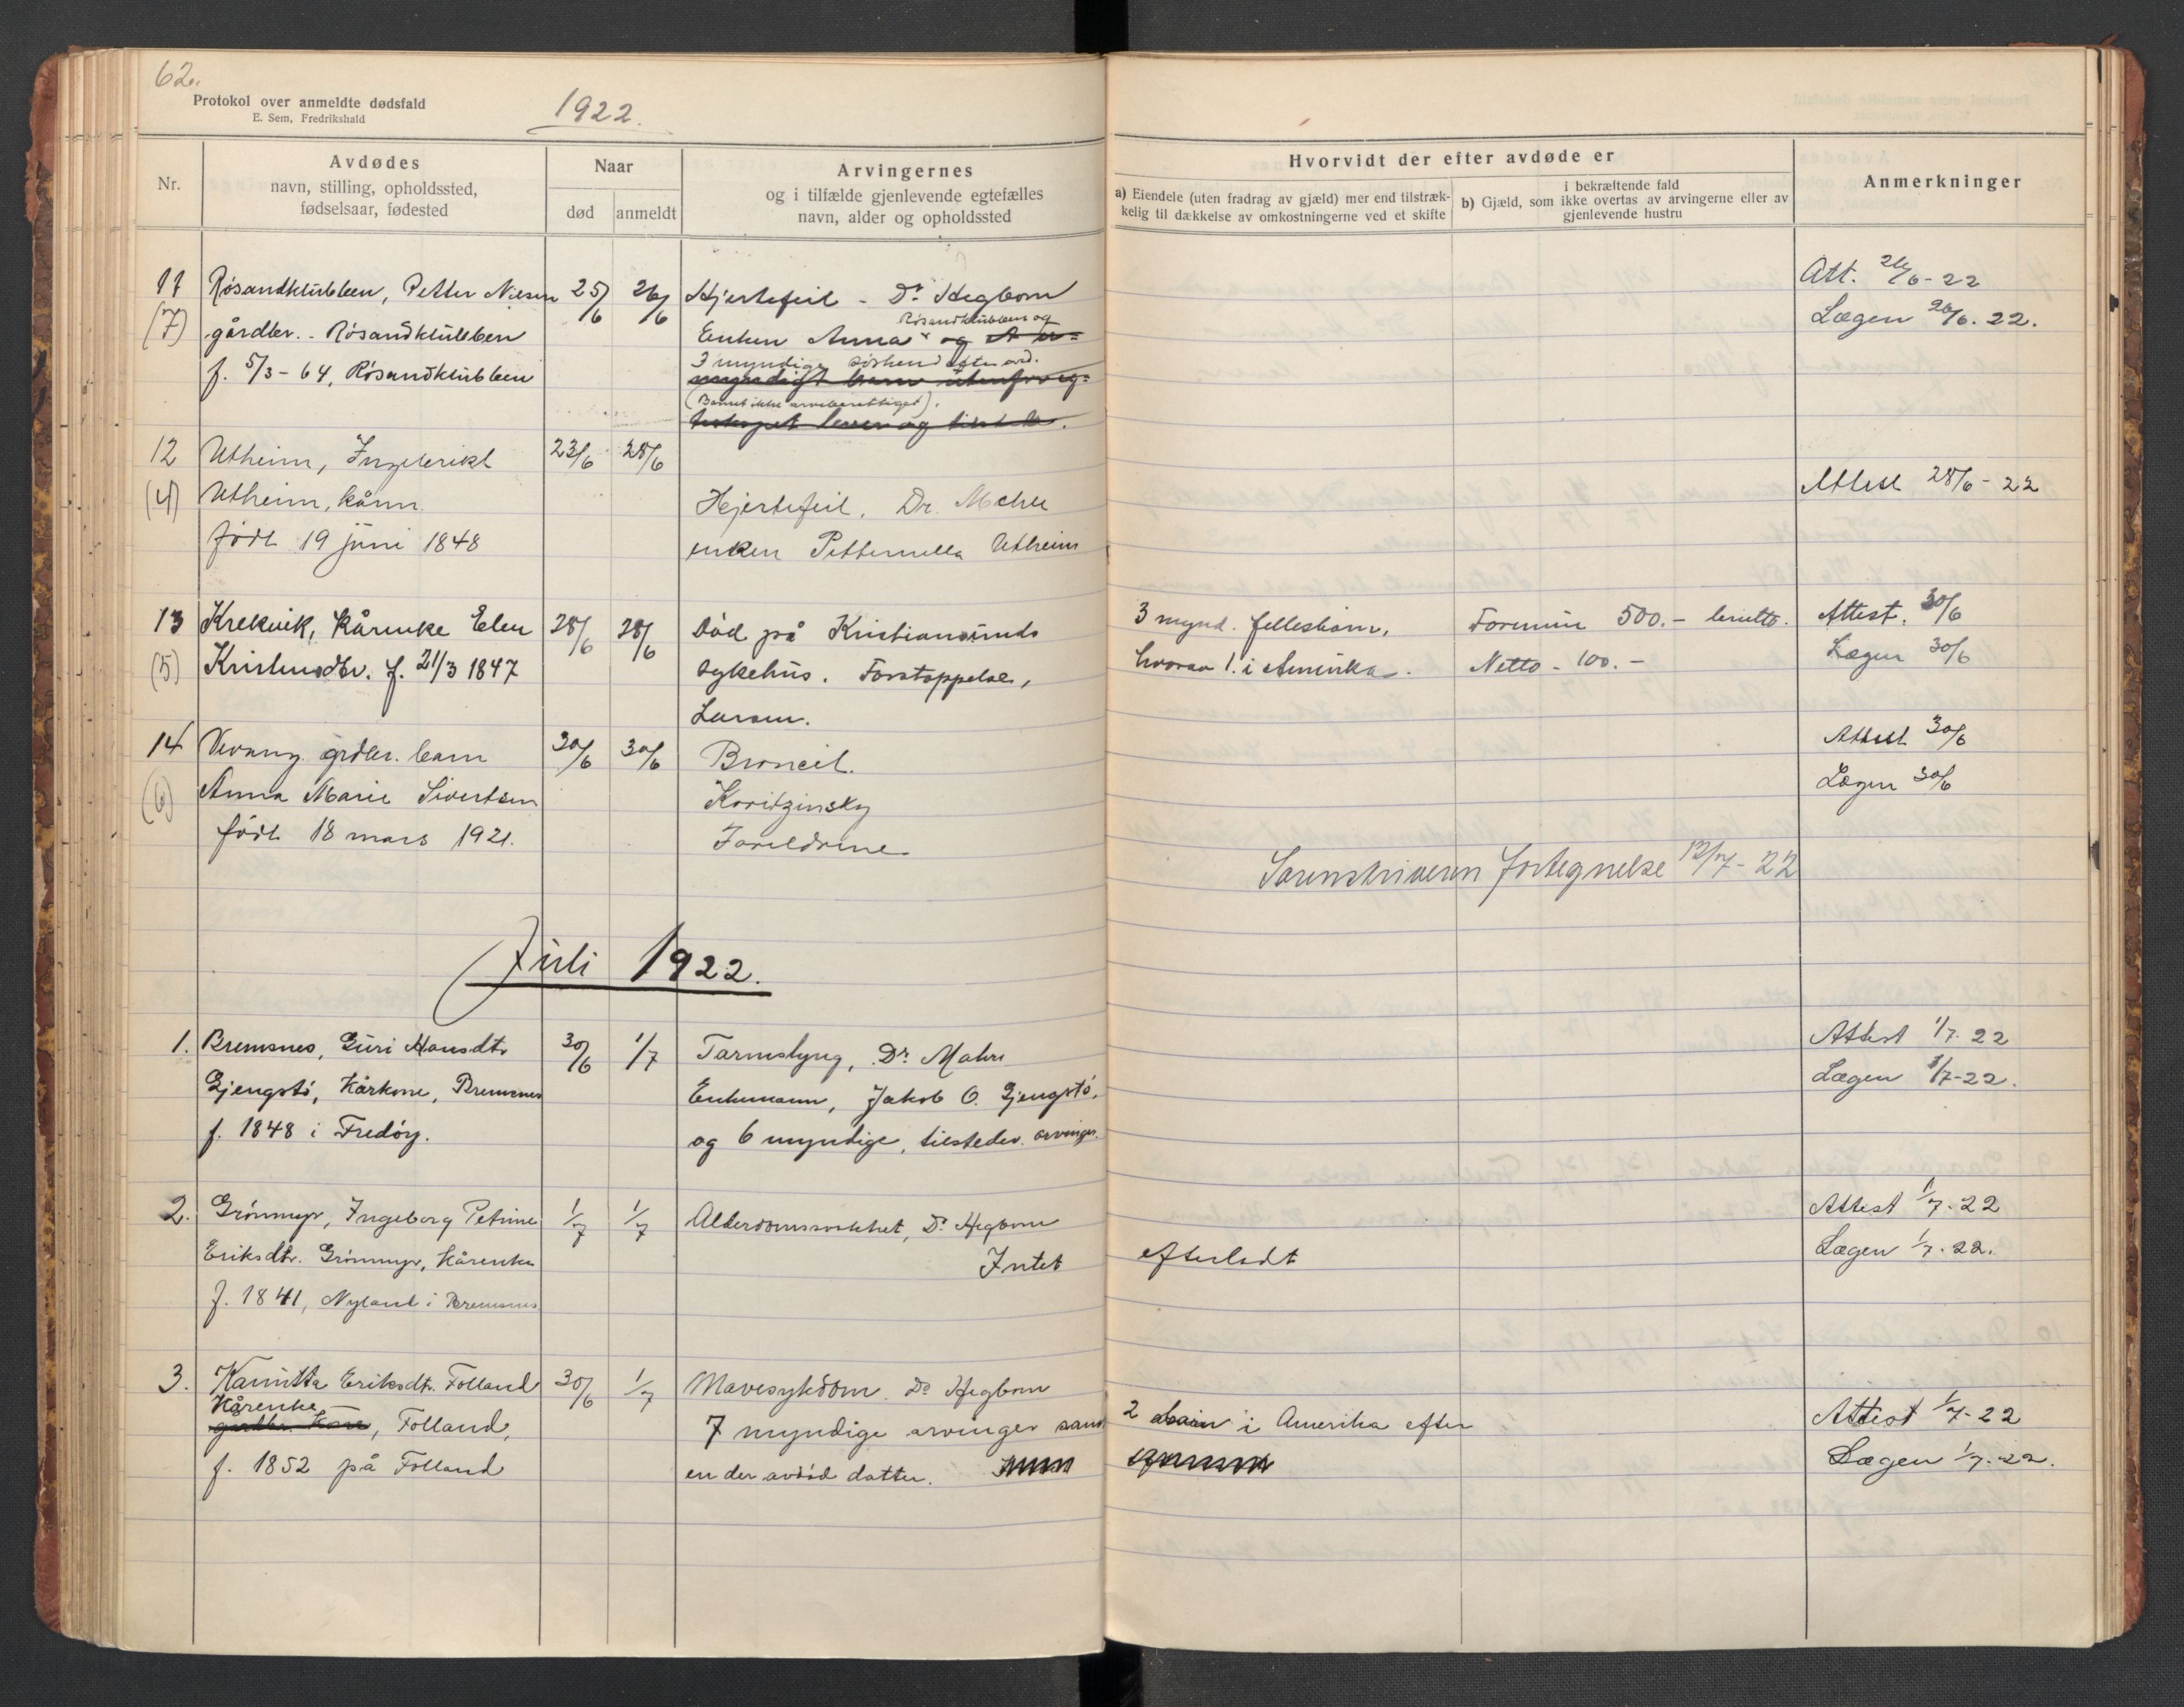 62.
Protokol over anmeldte dødsfald
E. Sem, Fredrikshald
1922.
Nr.
Avdødes
navn, stilling, opholdssted,
fødselsaar, fødested
Naar
død
anmeldt
Arvingernes
og i tilfælde gjenlevende egtefælles
navn, alder og opholdssted
Hvorvidt der efter avdøde er
a) Eiendele (uten fradrag av gjæld) mer end tilstræk-
kelig til dækkelse av omkostningerne ved et skifte
i bekræftende fald
b) Gjæld, som ikke overtas av arvingerne eller av
gjenlevende hustru
Anmerkninger
11 Røsandklubben, Petter Nilsen 25/6 26/6 Hjertefeil - Dr. Hegbom Att. 26/6-22
(7) gårdbr. - Røsandklubben Røsandklubben og
Enken Anna og Lægen 26/6. 22.
f. 5/3-64, Røsandklubben 3 myndige søskend efter avd.
(Barnet ikke arveberettiget).
12 Utheim, Ingebrikt 23/6 28/6
(4) Utheim, kårm. Hjertefeil. Dr. Attest 28/6-22
født 19 juni 1848 enken Petternella Utheim
13 Krekvik, kårenke Elen 28/6 28/6 Død på Kristiansunds 3 mynd. fellesbarn, Formue 500.- brutto. Attest. 30/6
(5) Kristensdtr. f. 21/3 1847 sykehus. Forstoppelse, hvorav 1. i Amerika. Netto - 100.- Lægen 30/6
Larsen.
14 Vevang grdbr. barn 30/6 30/6 Broncit. Attest 30/6
(6) Anna Marie Sivertsen Koritzinsky Lægen 30/6
født 18 mars 1921. Foreldrene
Sorenskriveren fortegnelse 12/7-22
Juli 1922.
1. Bremsnes, Guri Hansdtr 30/6 1/7 Tarmslyng, Dr. Mahre Attest 1/7. 22
Gjengstø, Kårkone, Bremsnes Enkemann, Jakob O. Gjengstø, Lægen 1/7-22.
f. 1848 i Fredøy. og 6 myndige, tilstedev. arvinger.
2. Grønmyr, Ingeborg Petrine 1/7 1/7 Alderdomssvakhet, Dr. Hegbom Attest 1/7-22
Eriksdtr. Grønmyr, Kårenke Intet efterladt Lægen 1/7-22.
f. 1841, Nyland i Bremsnes
3. Eriksdtr. Folland 30/6 1/7 Mavesykdom. Dr. Hegbom
Kårenke
gardbr. kone, Folland, 7 myndige arvinger samt 2 barn i Amerika efter Attest 1/7-22
f. 1852 på Folland en der avdød datter. Lægen 1/7-22.